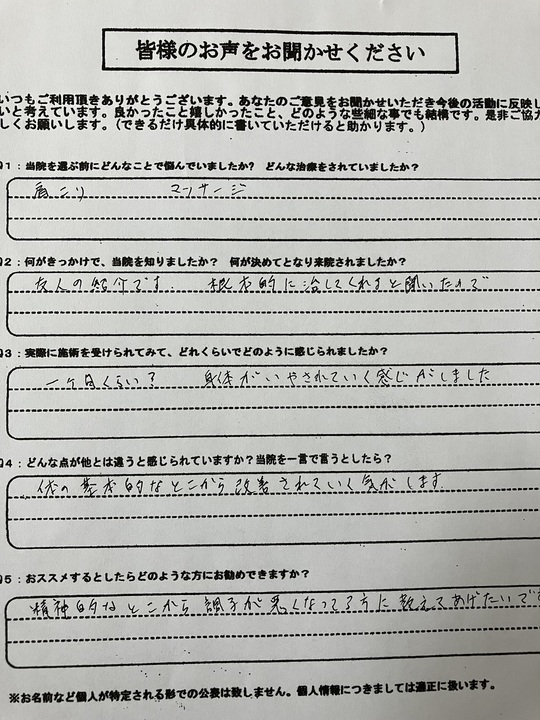 皆様のお声をお聞かせください
いつもご利用頂きありがとうございます。あなたのご意見をお聞かせいただき今後の活動に反映し
いと考えています。良かったこと嬉しかったこと、どのような些細な事でも結構です。是非ご協力
しくお願いします。(できるだけ具体的に書いていただけると助かります。)
Q1：当院を選ぶ前にどんなことで悩んでいましたか？ どんな治療をされていましたか？
肩こり マッサージ
Q2：何がきっかけで、当院を知りましたか？ 何が決めてとなり来院されましたか？
友人の紹介です. 根本的に治してくれると聞いたので
Q3：実際に施術を受けられてみて、どれくらいでどのように感じられましたか？
一ヶ月くらい？ 身体がいやされていく感じがしました
Q4：どんな点が他とは違うと感じられていますか？当院を一言で言うとしたら？
体の基本的なとこから改善されていく気がします
Q5：おススメするとしたらどのような方にお勧めできますか？
精神的なとこから調子が悪くなってる方に教えてあげたいです
※お名前など個人が特定される形での公表は致しません。個人情報につきましては適正に扱います。